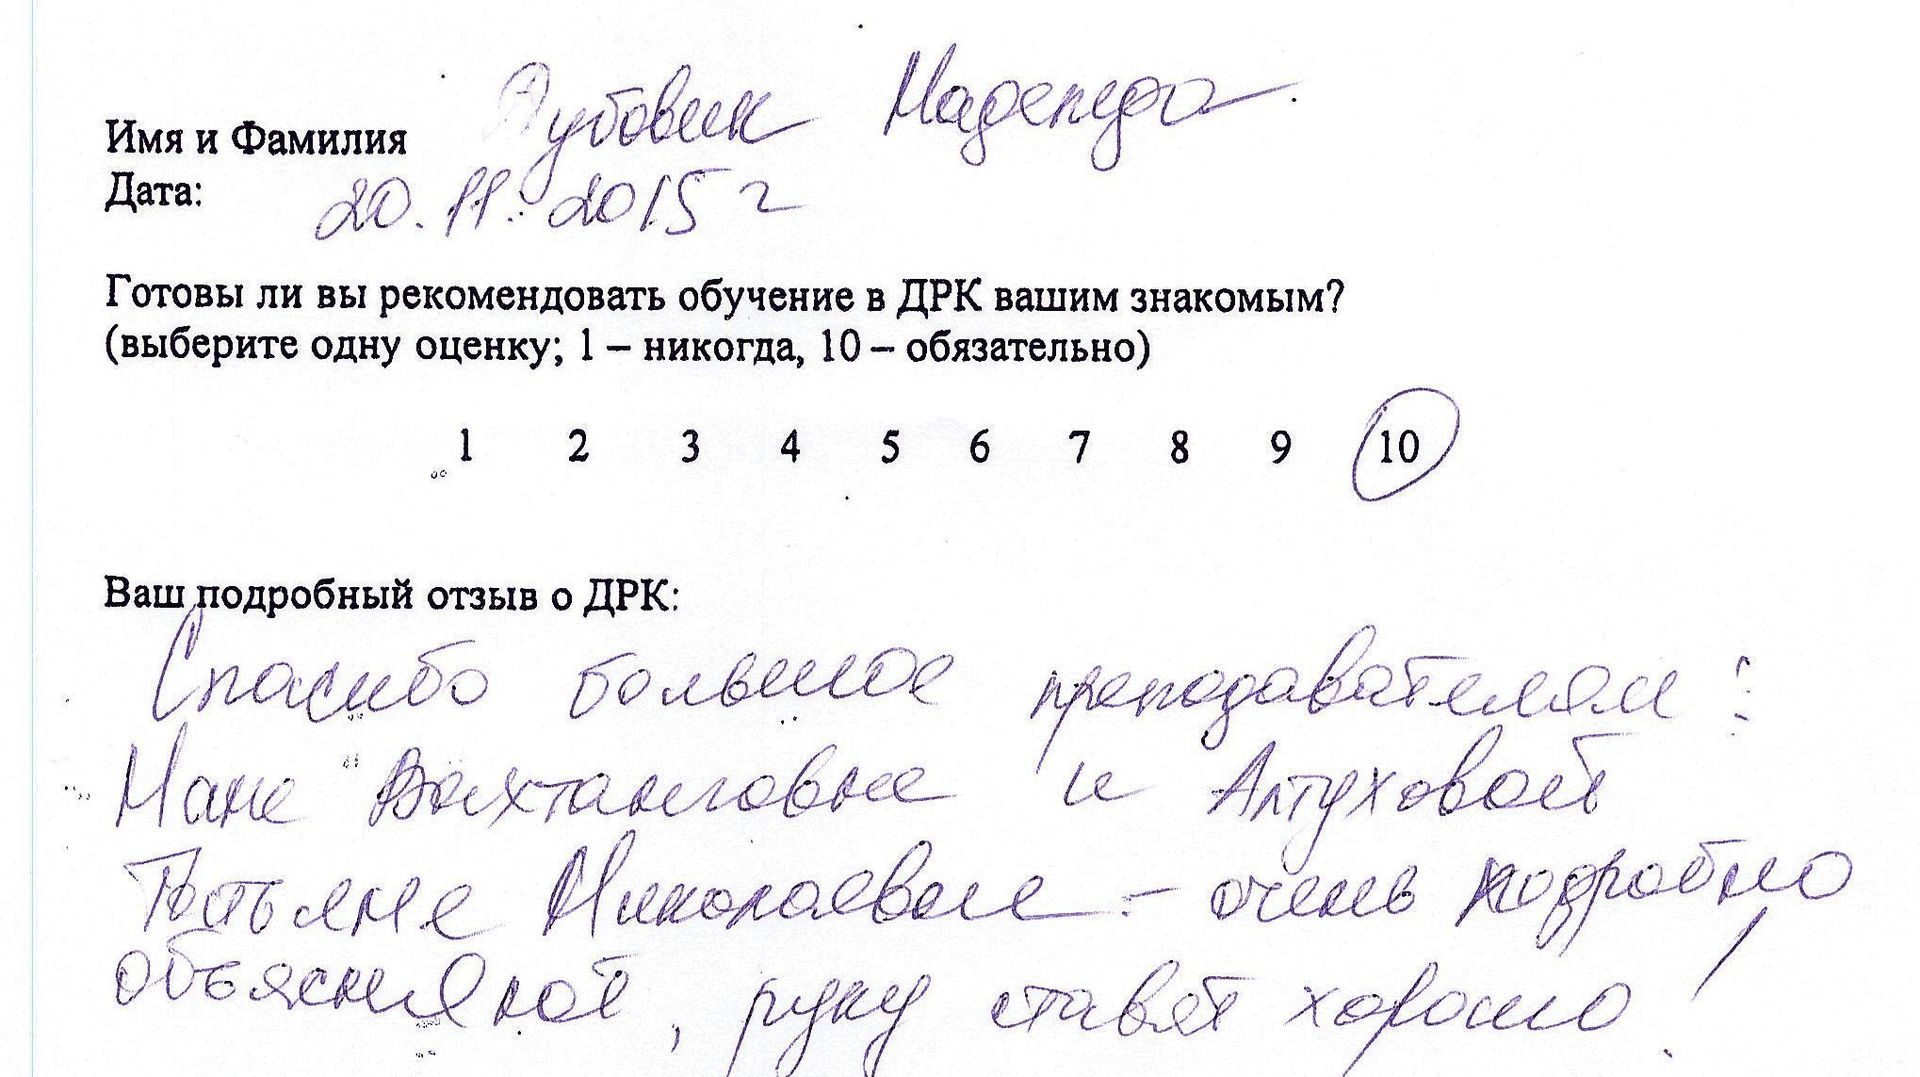 Имя и Фамилия Дубовик Надежда.
Дата: 20.11.2015 г
Готовы ли вы рекомендовать обучение в ДРК вашим знакомым?
(выберите одну оценку; 1 – никогда, 10 – обязательно)
1 2 3 4 5 6 7 8 9 10
Ваш подробный отзыв о ДРК:
Спасибо большое преподавателям:
Нане Вахтанговне и Алтуховой
Татьяне Николаевне – очень подробно
объясняют, руку ставят хорошо!